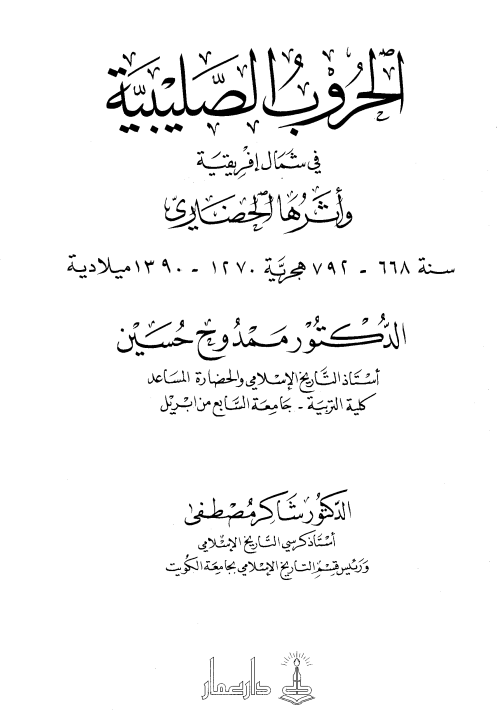 الحُرُوبُ الصَّلِيبِيَّة
في شمَال إفْرِيقيَة
وَأثَرُهَا الحَضَارِيّ
سنة ٦٦٨ - ٧٩٢ هجريّة ١٢٧٠ - ١٣٩٠ ميلادية
الدُّكتُور مَمْدُوح حُسَين
أستاذ التَّاريخ الإسْلامي والحضارة المسَاعد
كلية التربية - جَامِعَة السَّابع من ابريْل
الدكتُور شَاكِر مُصْطفىٰ
أستاذ كرسي التَّاريخ الإسْلامي
وَرَئيس قِسْم التاريخ الإسْلامي بجامعَة الكوَيت
دار عمار